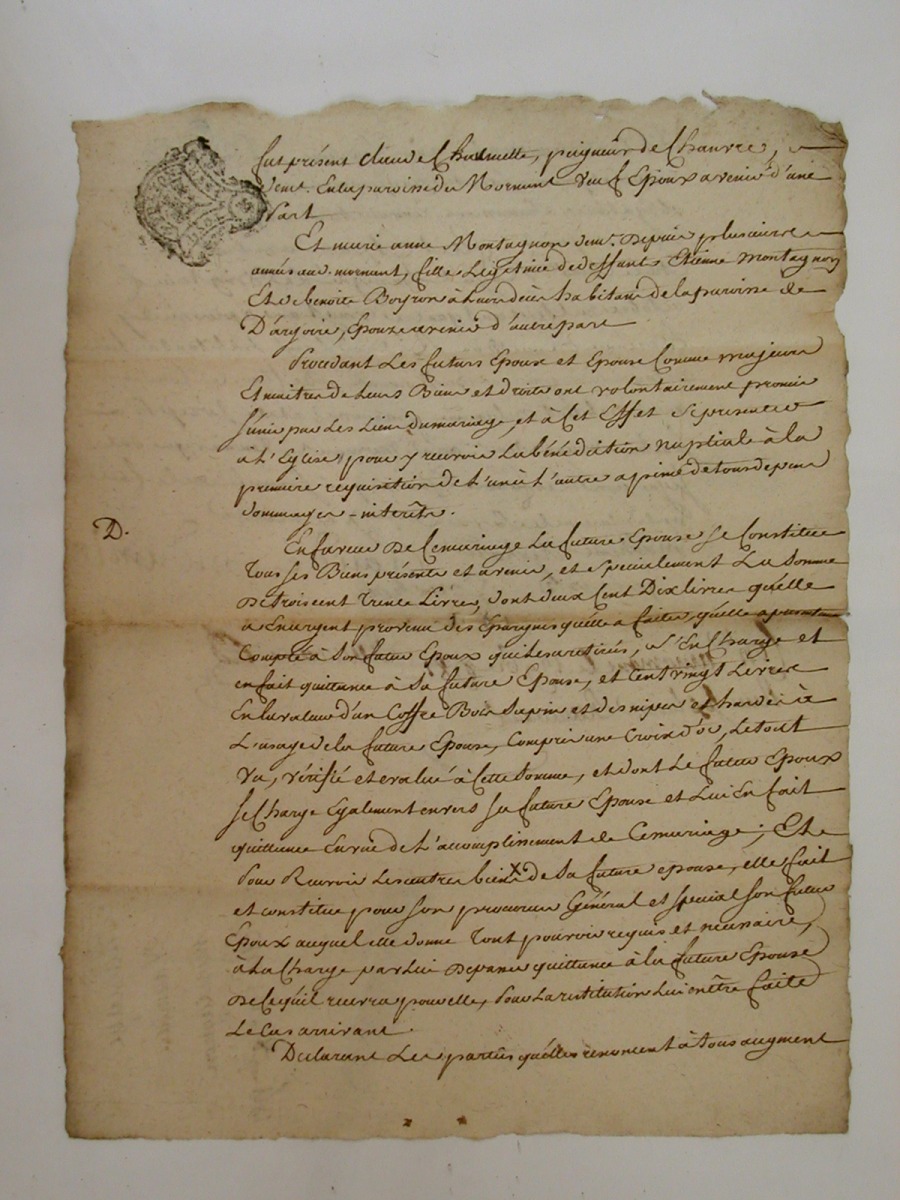 fut présent claude Chaumette, peigneur de Chanvre,
demt. En la paroisse de Mornant veuf Epoux avenir d'une
Part
Et marie anne Montagnon demt. Depuis plusieurs
années au. mornant, fille Légitime de deffunts Etienne montagnon
Et de benoite Boiron à Leur décès habitans de la paroisse de
D'argoire, Epouze avenir d'autre part
Procedant Les futurs Epoux et Epouse Comme majeurs
Et maitres de Leurs Biens et droits ont volontairement promis
s'unir par Les Liens du mariage, et à Cet Effet se presenter
à L'Eglise pour y recevoir La bénédiction nuptiale à La
premiere requisition de L'un à L'autre a peine de tous depens
dommages-interêts.
D.
En faveur De Ce mariage La future Epouse se Constitue
Tous ses Biens présents et avenir, et spécialement La Somme
De trois cent Trente Livres, dont deux Cent Dix livres qu'elle
a En argent provenu des Epargnes qu'elle a faites, qu'elle a
Compté à Son futur Epoux qui Les a retirés, s'En Charge et
en fait quittance à Sa future Epouse, et Cent vingt Livres
En la valeur d'un Coffre Bois Sapin et des nipes et hardes à
L'usage de la future Epouse, Compris une Croix d'or, Le tout
Vu, vérifié et evalué à Cette Somme, et dont Le futur Epoux
se Charge Egalement envers sa future Epouse et Lui En fait
quittance En vue de L'accomplissement de Ce mariage; Et
Pour Recevoir Les autres biens de Sa future epouse, elle fait
et constitue pour son procureur Général et spécial Son futur
Epoux auquel elle donne Tout pouvoir requis et necessaire,
à La Charge par Lui De passer quittance à la future Epouse
De Ce qu'il recevra pour elle, Pour La restitution Lui en être faite
Le Cas arrivant.
Déclarant Les parties qu'elles renoncent à tous augment